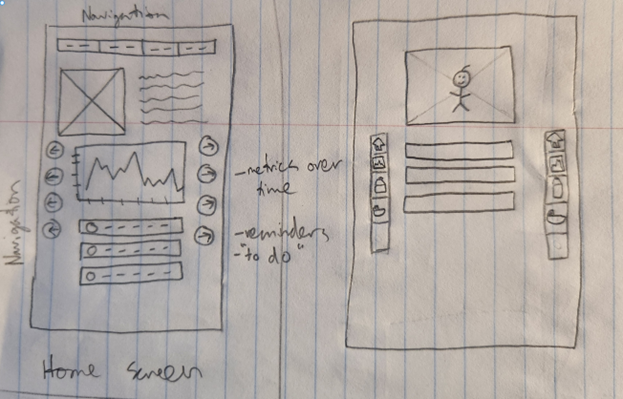 Navigation
Navigation
- metrics over
time
- reminders
- "to do"
Home Screen